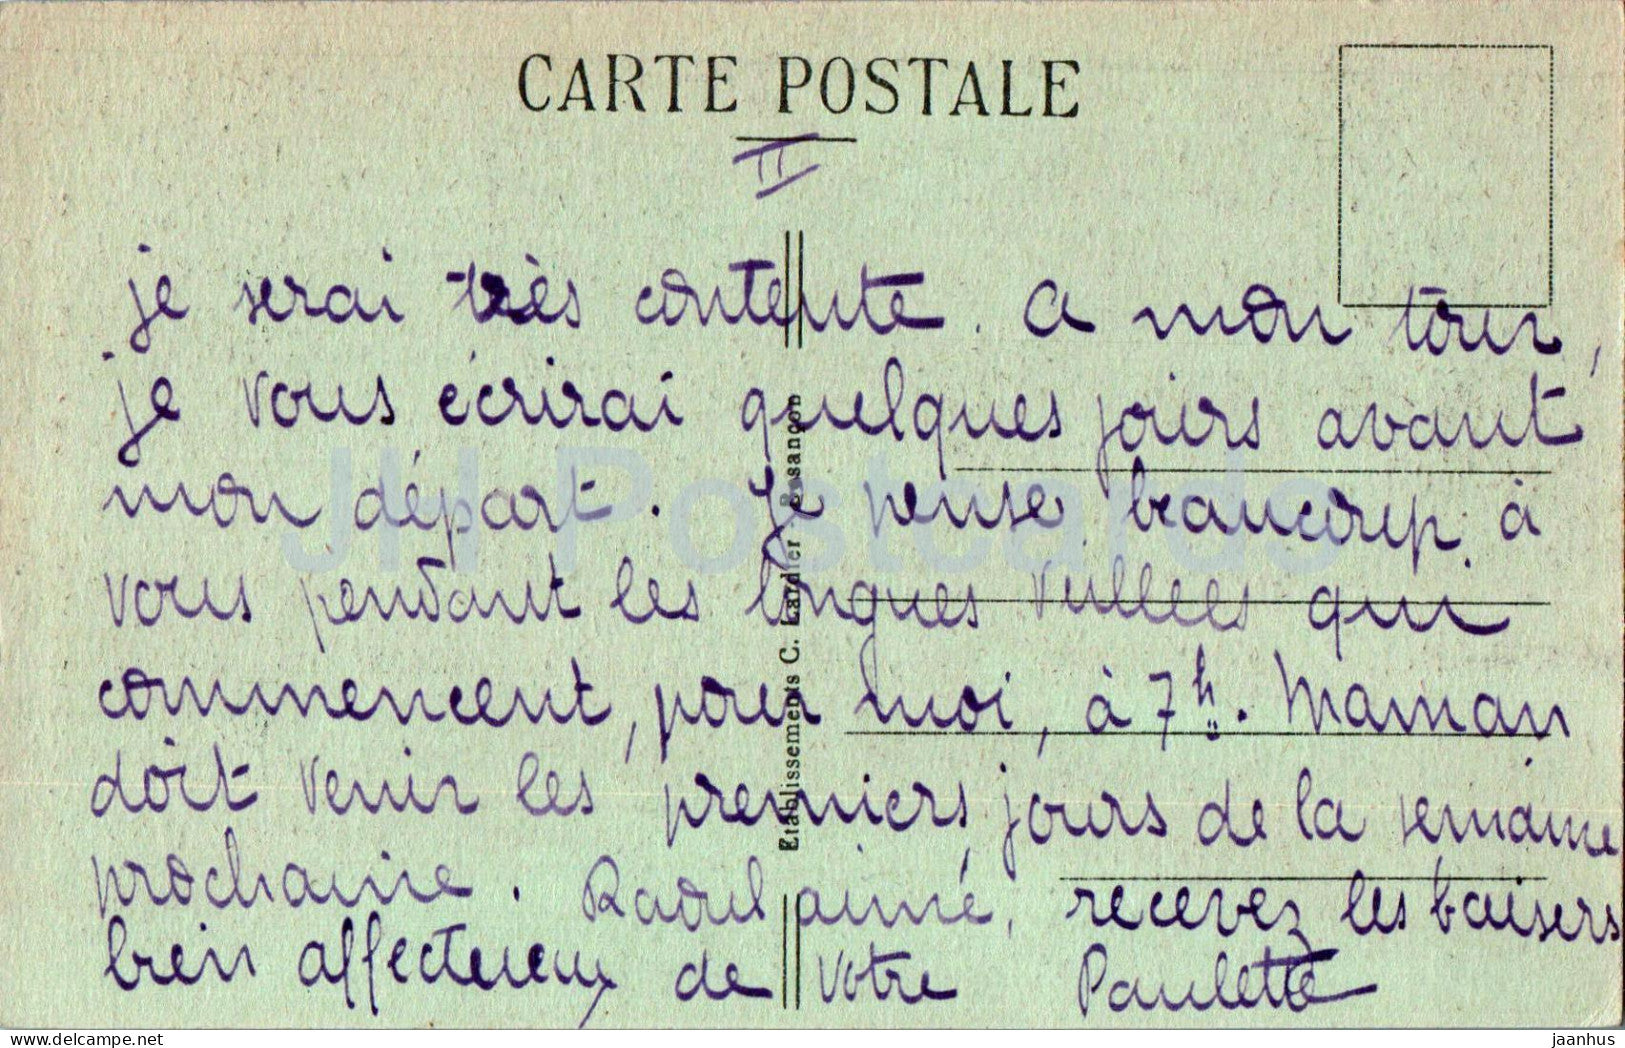 CARTE POSTALE
II
je serai très contente. A mon tour,
je vous écrirai quelques jours avant
mon départ. Je pense beaucoup à
vous pendant les longues veillées qui
commencent, pour moi, à 7h. Maman
doit venir les premiers jours de la semaine
prochaine. Raoul aimé, recevez les baisers
bien affectueux de votre Paulette
Etablissements C. Lardier - Besançon
JH Postcards
jaanhus